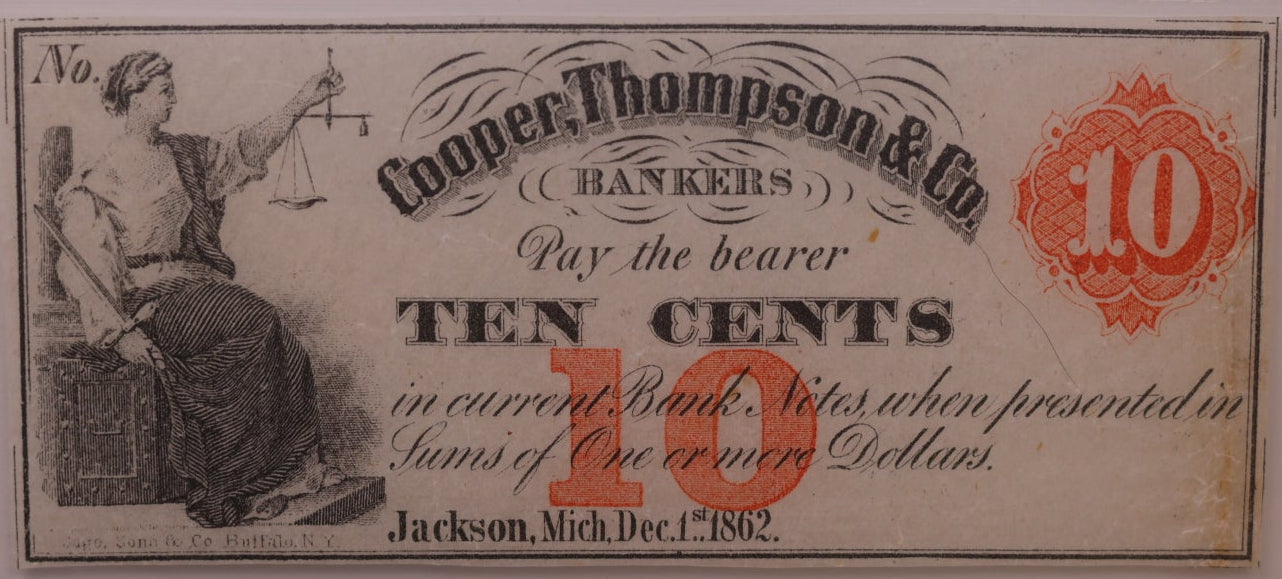 No.
Cooper, Thompson & Co.
BANKERS
10
Pay the bearer
TEN CENTS
10
in current Bank Notes, when presented in
Sums of One or more Dollars.
Jackson, Mich, Dec. 1st 1862.
Sage, Sons & Co. Buffalo, N.Y.